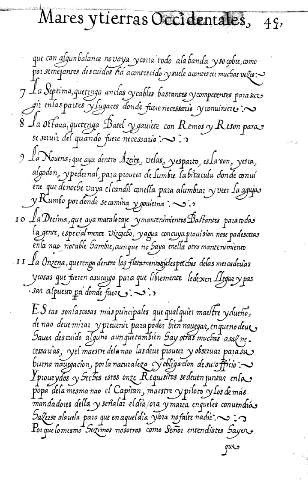 Mares y tierras Occidentales, 45.
que con algun balance no vaya y este todo a la banda y se cobre, como
por semejantes descuidos ha acontecido y suele acontecer muchas vezes
7 La Septima, que tenga anclas y cables bastantes y competentes para
en las partes y lugares donde fuere necessario y conuiniere
8 La octaua, que tenga Batel y gauiete con Remos y Reson para
se seruir del quando fuere necessario
9 La Nouena, que aya dentro Azeite, velas, y esparto, eslauon, yesca,
algodon, y pedernal, para proueer de lumbre la bitacula donde conui
ene que de noche vaya el candil conella para alumbrar y ver la aguja
y Rumbo por donde se camina y gouierna
10 La Decima, que aya matalotaje y mantenimientos Bastantes para toda
la gente, especialmente Vizcocho, y agua con cuya prouision no se padescera
en la nao notable hambre, aunque no haya enella otro mantenimiento
11 La Onzena, que tenga dentro los fletes de las mercadurias
y cosas que fueren para que libremente le dexen llegar y pas
sar al puerto para donde fuere
Estas son las cosas mas principales que qualquier maestre y dueño,
de nao deue mirar y preuenir para poder bien nauegar, en que no deue
hauer descuido alguno aunque tambien hay otras muchas assi ne-
cessarias, y el maestre de la nao las deue proueer y obseruar para su
buena nauegacion, por la naturaleza y obligacion de su officio
Y proueydos y hechos estos onze Requisitos se deuen juntar en la
popa de la mesma nao el Capitan, maestre y piloto y los demas
mandadores della y señalar el dia ora y marea en que les conuendra
hazerse a la uela para que en aquel dia y ora no falte nadie
Por que lo mesmo hazimos nosotros como Señor entendistes hauer
que